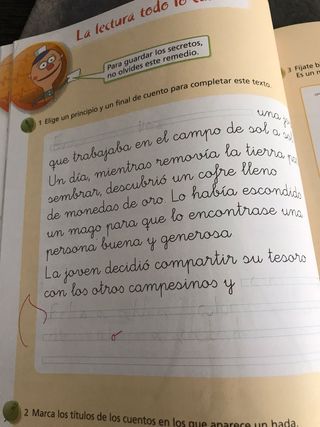 La lectura todo lo
Para guardar los secretos,
no olvides este remedio.
3 Fíjate
Es un
1 Elige un principio y un final de cuento para completar este texto.
una
que trabajaba en el campo de sol a
Un día, mientras removía la tierra
sembrar, descubrió un cofre lleno
de monedas de oro. Lo había escondido
un mago para que lo encontrase una
persona buena y generosa.
La joven decidió compartir su tesoro
con los otros campesinos y
2 Marca los títulos de los cuentos en los que aparece un hada.